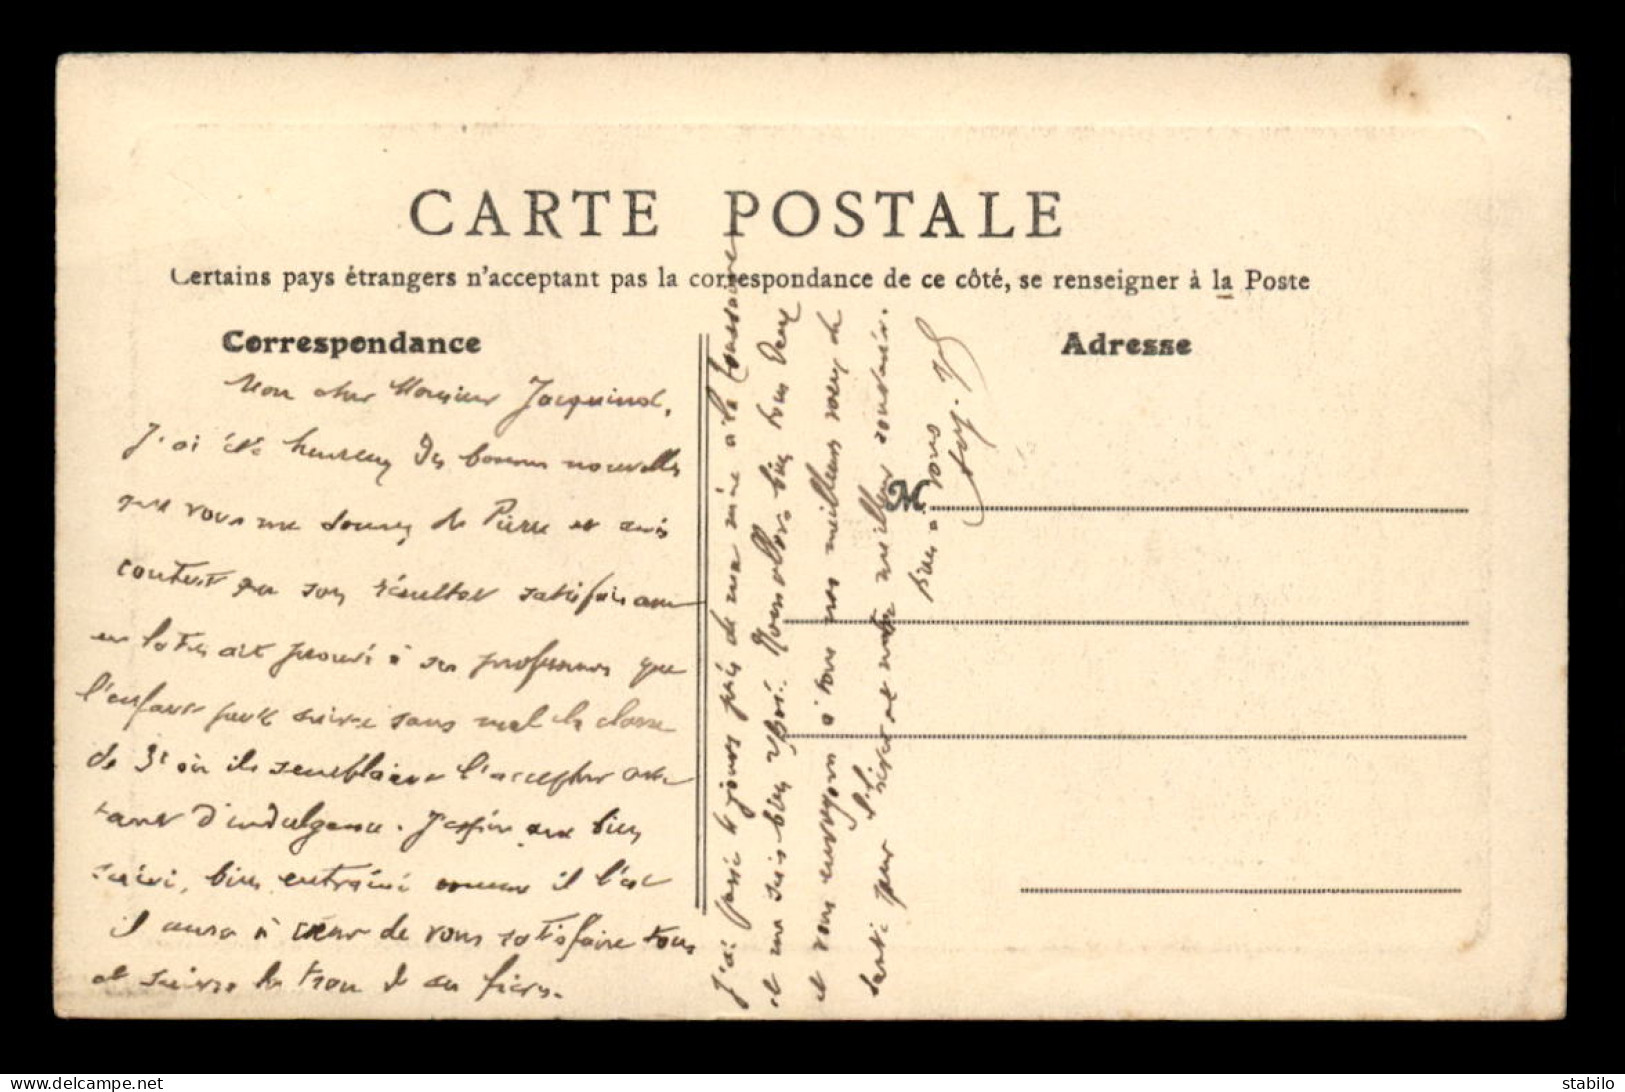 CARTE POSTALE
Certains pays étrangers n'acceptant pas la correspondance de ce côté, se renseigner à la Poste
Correspondance
Adresse
M
Mon cher Monsieur Jacquinot,
J'ai été heureux des bonnes nouvelles
que vous me donnez de Pierre et suis
content que son résultat satisfaisant
en latin ait prouvé à ses professeurs que
l'enfant peut suivre sans mal la classe
de 3e où ils semblaient l'accepter avec
tant d'indulgence. J'espère que bien
suivi, bien entraîné comme il l'est
il aura à cœur de vous satisfaire tous
et suivre la trace de ses frères.
J'ai passé 4 jours près de ma mère à la Toussaint
et me suis bien reposé. Nous allons bien tous deux
et vous envoyons à tous nos meilleurs vœux de
santé pour l'hiver et notre meilleur souvenir.
Bien à vous